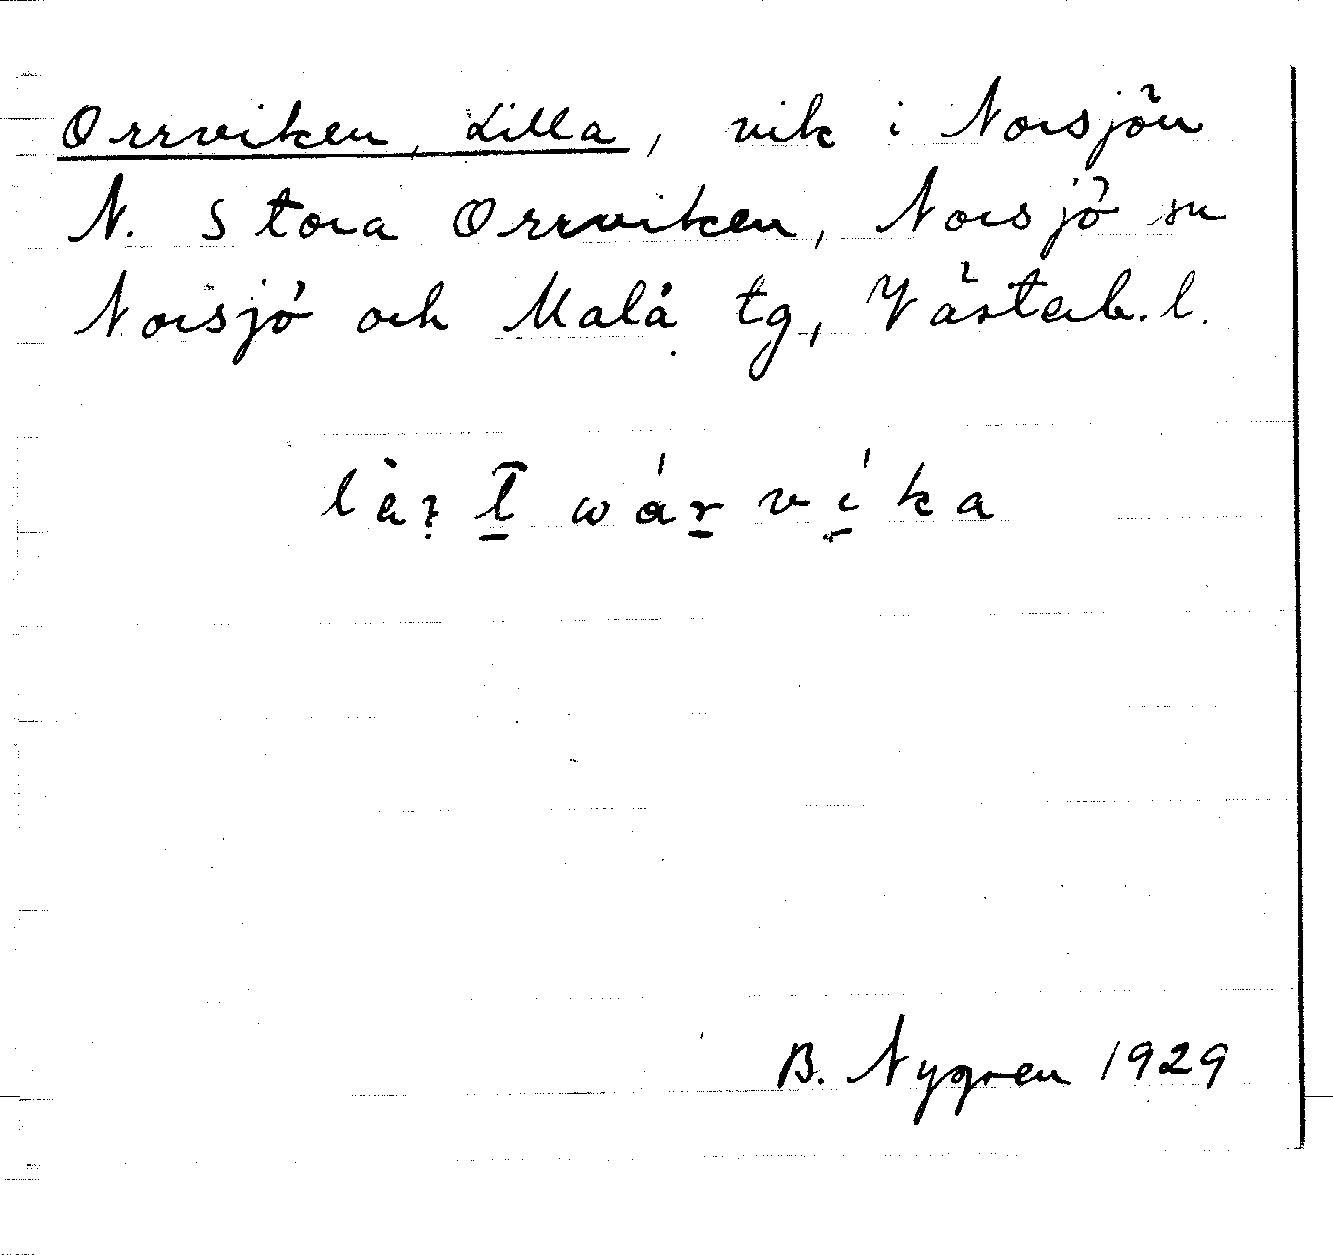 Orrviken, Lilla, vik i Norsjön
N. Stora Orrviken, Norsjö sn
Norsjö och Malå tg, Västerb. l.
wárvíka
B. Nygren 1929